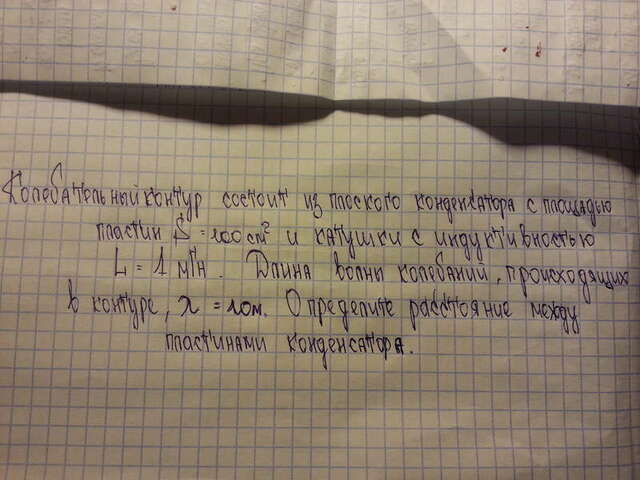 Колебательный контур состоит из плоского конденсатора с площадью
пластин S = 100 см² и катушки с индуктивностью
L = 1 мГн. Длина волны колебаний, происходящих
в контуре, λ = 10м. Определите расстояние между
пластинами конденсатора.